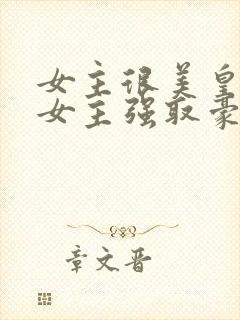 女主很美皇
女主强取豪
章文晋